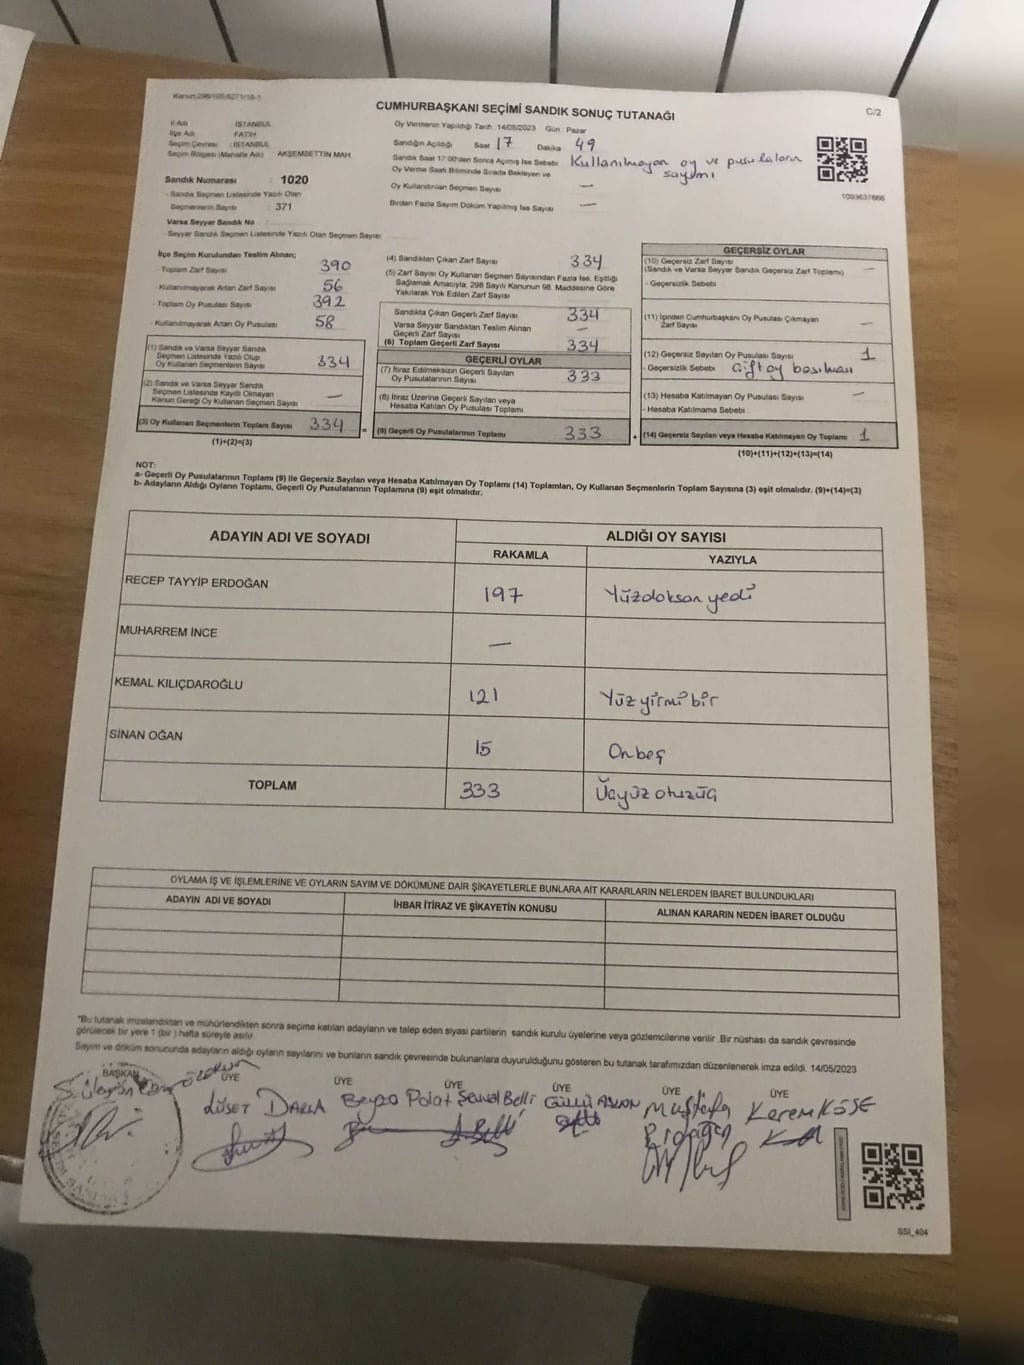 Kanun:298/105,6271/18-1
CUMHURBAŞKANI SEÇİMİ SANDIK SONUÇ TUTANAĞI
C/2
İl Adı : İSTANBUL
İlçe Adı : FATİH
Seçim Çevresi : İSTANBUL
Seçim Bölgesi (Mahalle Adı) : AKŞEMSETTİN MAH.
Sandık Numarası : 1020
- Sandık Seçmen Listesinde Yazılı Olan
Seçmenlerin Sayısı : 371
Varsa Seyyar Sandık No
Seyyar Sandık Seçmen Listesinde Yazılı Olan Seçmen Sayısı
Oy Vermenin Yapıldığı Tarih :14/05/2023 Gün : Pazar
Sandığın Açıldığı Saat 17 Dakika 49
Sandık Saat 17:00'den Sonra Açılmış İse Sebebi Kullanılmayan oy ve pusulaların
sayımı
Oy Verme Saati Bitiminde Sırada Bekleyen ve
Oy Kullandırılan Seçmen Sayısı —
Birden Fazla Sayım Döküm Yapılmış İse Sayısı —
1093637666
İlçe Seçim Kurulundan Teslim Alınan;
- Toplam Zarf Sayısı 390
- Kullanılmayarak Artan Zarf Sayısı 56
- Toplam Oy Pusulası Sayısı 392
- Kullanılmayarak Artan Oy Pusulası 58
(1) Sandık ve Varsa Seyyar Sandık
Seçmen Listesinde Yazılı Olup
Oy Kullanan Seçmenlerin Sayısı 334
(2) Sandık ve Varsa Seyyar Sandık
Seçmen Listesinde Kayıtlı Olmayan
Kanun Gereği Oy Kullanan Seçmen Sayısı —
(3) Oy Kullanan Seçmenlerin Toplam Sayısı 334
(1)+(2)=(3)
(4) Sandıktan Çıkan Zarf Sayısı 334
(5) Zarf Sayısı Oy Kullanan Seçmen Sayısından Fazla İse, Eşitliği
Sağlamak Amacıyla, 298 Sayılı Kanunun 98. Maddesine Göre
Yakılarak Yok Edilen Zarf Sayısı
Sandıkta Çıkan Geçerli Zarf Sayısı 334
Varsa Seyyar Sandıktan Teslim Alınan
Geçerli Zarf Sayısı —
(6) Toplam Geçerli Zarf Sayısı 334
GEÇERLİ OYLAR
(7) İtiraz Edilmeksizin Geçerli Sayılan
Oy Pusulalarının Sayısı 333
(8) İtiraz Üzerine Geçerli Sayılan veya
Hesaba Katılan Oy Pusulası Toplamı
= (9) Geçerli Oy Pusulalarının Toplamı 333
GEÇERSİZ OYLAR
(10) Geçersiz Zarf Sayısı —
(Sandık ve Varsa Seyyar Sandık Geçersiz Zarf Toplamı)
- Geçersizlik Sebebi :
(11) İçinden Cumhurbaşkanı Oy Pusulası Çıkmayan
Zarf Sayısı —
(12) Geçersiz Sayılan Oy Pusulası Sayısı 1
- Geçersizlik Sebebi : Çift oy basılması
(13) Hesaba Katılmayan Oy Pusulası Sayısı —
- Hesaba Katılmama Sebebi
+ (14) Geçersiz Sayılan veya Hesaba Katılmayan Oy Toplamı 1
(10)+(11)+(12)+(13)=(14)
NOT:
a- Geçerli Oy Pusulalarının Toplamı (9) ile Geçersiz Sayılan veya Hesaba Katılmayan Oy Toplamı (14) Toplamları, Oy Kullanan Seçmenlerin Toplam Sayısına (3) eşit olmalıdır. (9)+(14)=(3)
b- Adayların Aldığı Oyların Toplamı, Geçerli Oy Pusulalarının Toplamına (9) eşit olmalıdır.
ADAYIN ADI VE SOYADI ALDIĞI OY SAYISI
RAKAMLA YAZIYLA
RECEP TAYYİP ERDOĞAN 197 Yüzdoksan yedi
MUHARREM İNCE —
KEMAL KILIÇDAROĞLU 121 Yüz yirmi bir
SİNAN OĞAN 15 Onbeş
TOPLAM 333 Üçyüz otuzüç
OYLAMA İŞ VE İŞLEMLERİNE VE OYLARIN SAYIM VE DÖKÜMÜNE DAİR ŞİKAYETLERLE BUNLARA AİT KARARLARIN NELERDEN İBARET BULUNDUKLARI
ADAYIN ADI VE SOYADI İHBAR İTİRAZ VE ŞİKAYETİN KONUSU ALINAN KARARIN NEDEN İBARET OLDUĞU
"Bu tutanak imzalandıktan ve mühürlendikten sonra seçime katılan adayların ve talep eden siyasi partilerin sandık kurulu üyelerine veya gözlemcilerine verilir .Bir nüshası da sandık çevresinde
görülecek bir yere 1 (bir ) hafta süreyle asılır.
Sayım ve döküm sonucunda adayların aldığı oyların sayılarını ve bunların sandık çevresinde bulunanlara duyurulduğunu gösteren bu tutanak tarafımızdan düzenlenerek imza edildi. 14/05/2023
BAŞKAN ÜYE ÜYE ÜYE ÜYE ÜYE ÜYE
LÜSET DARLA Beyza Polat Şenol Belli GÜLLÜ ASLAN Mustafa Kerem KÖSE
SSI_404